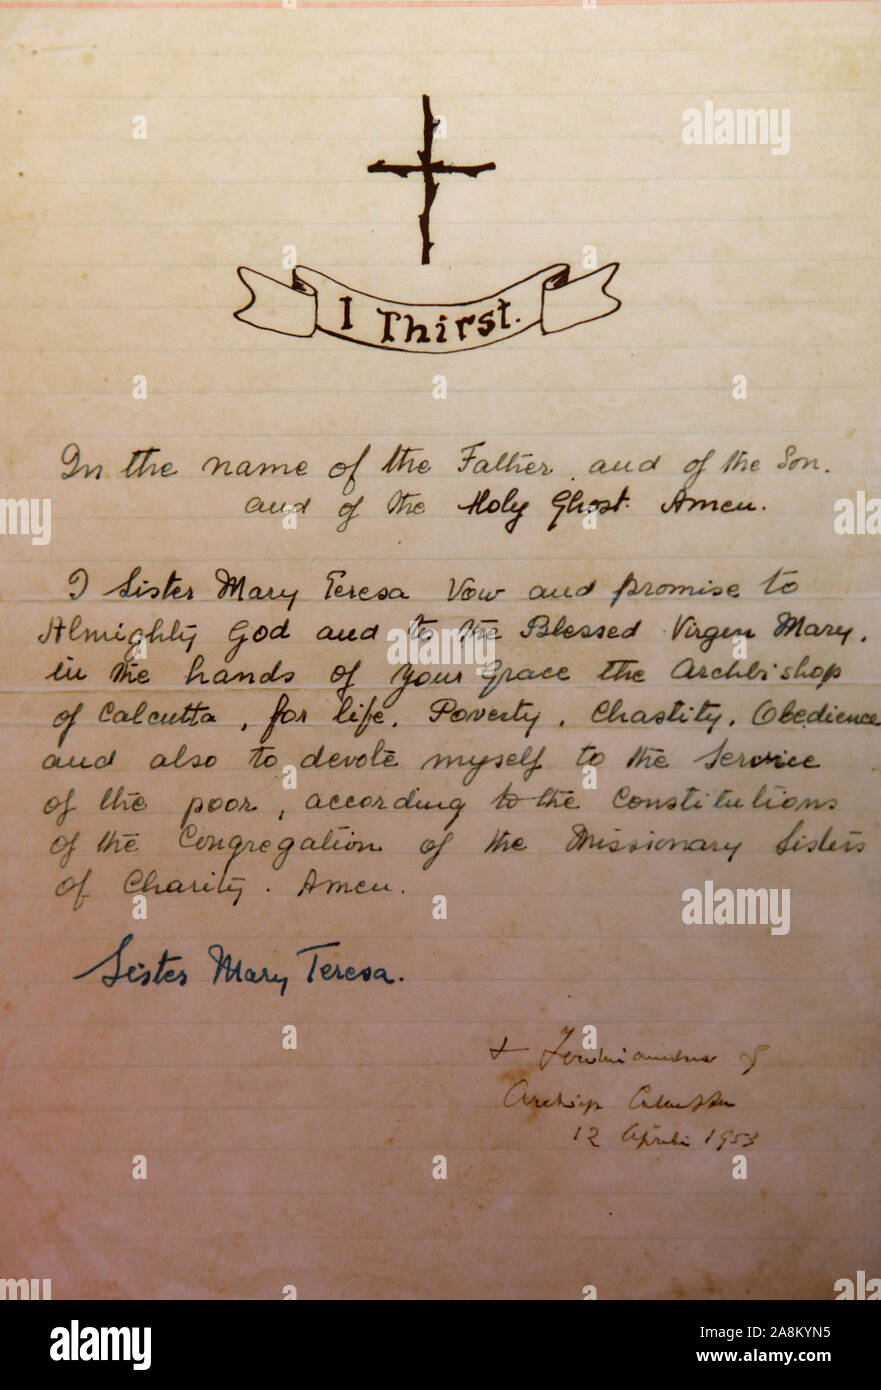 I Thirst.
In the name of the Father and of the Son.
and of the Holy Ghost. Amen.
I Sister Mary Teresa vow and promise to
Almighty God and to the Blessed Virgin Mary,
in the hands of your Grace the Archbishop
of Calcutta, for life, Poverty, Chastity, Obedience
and also to devote myself to the Service
of the poor, according to the Constitutions
of the Congregation of the Missionary Sisters
of Charity. Amen.
Sister Mary Teresa.
+ Ferdinandus
12 Aprilis 1953
a alamy
alamy
Image ID: 2A8KYN5
www.alamy.com